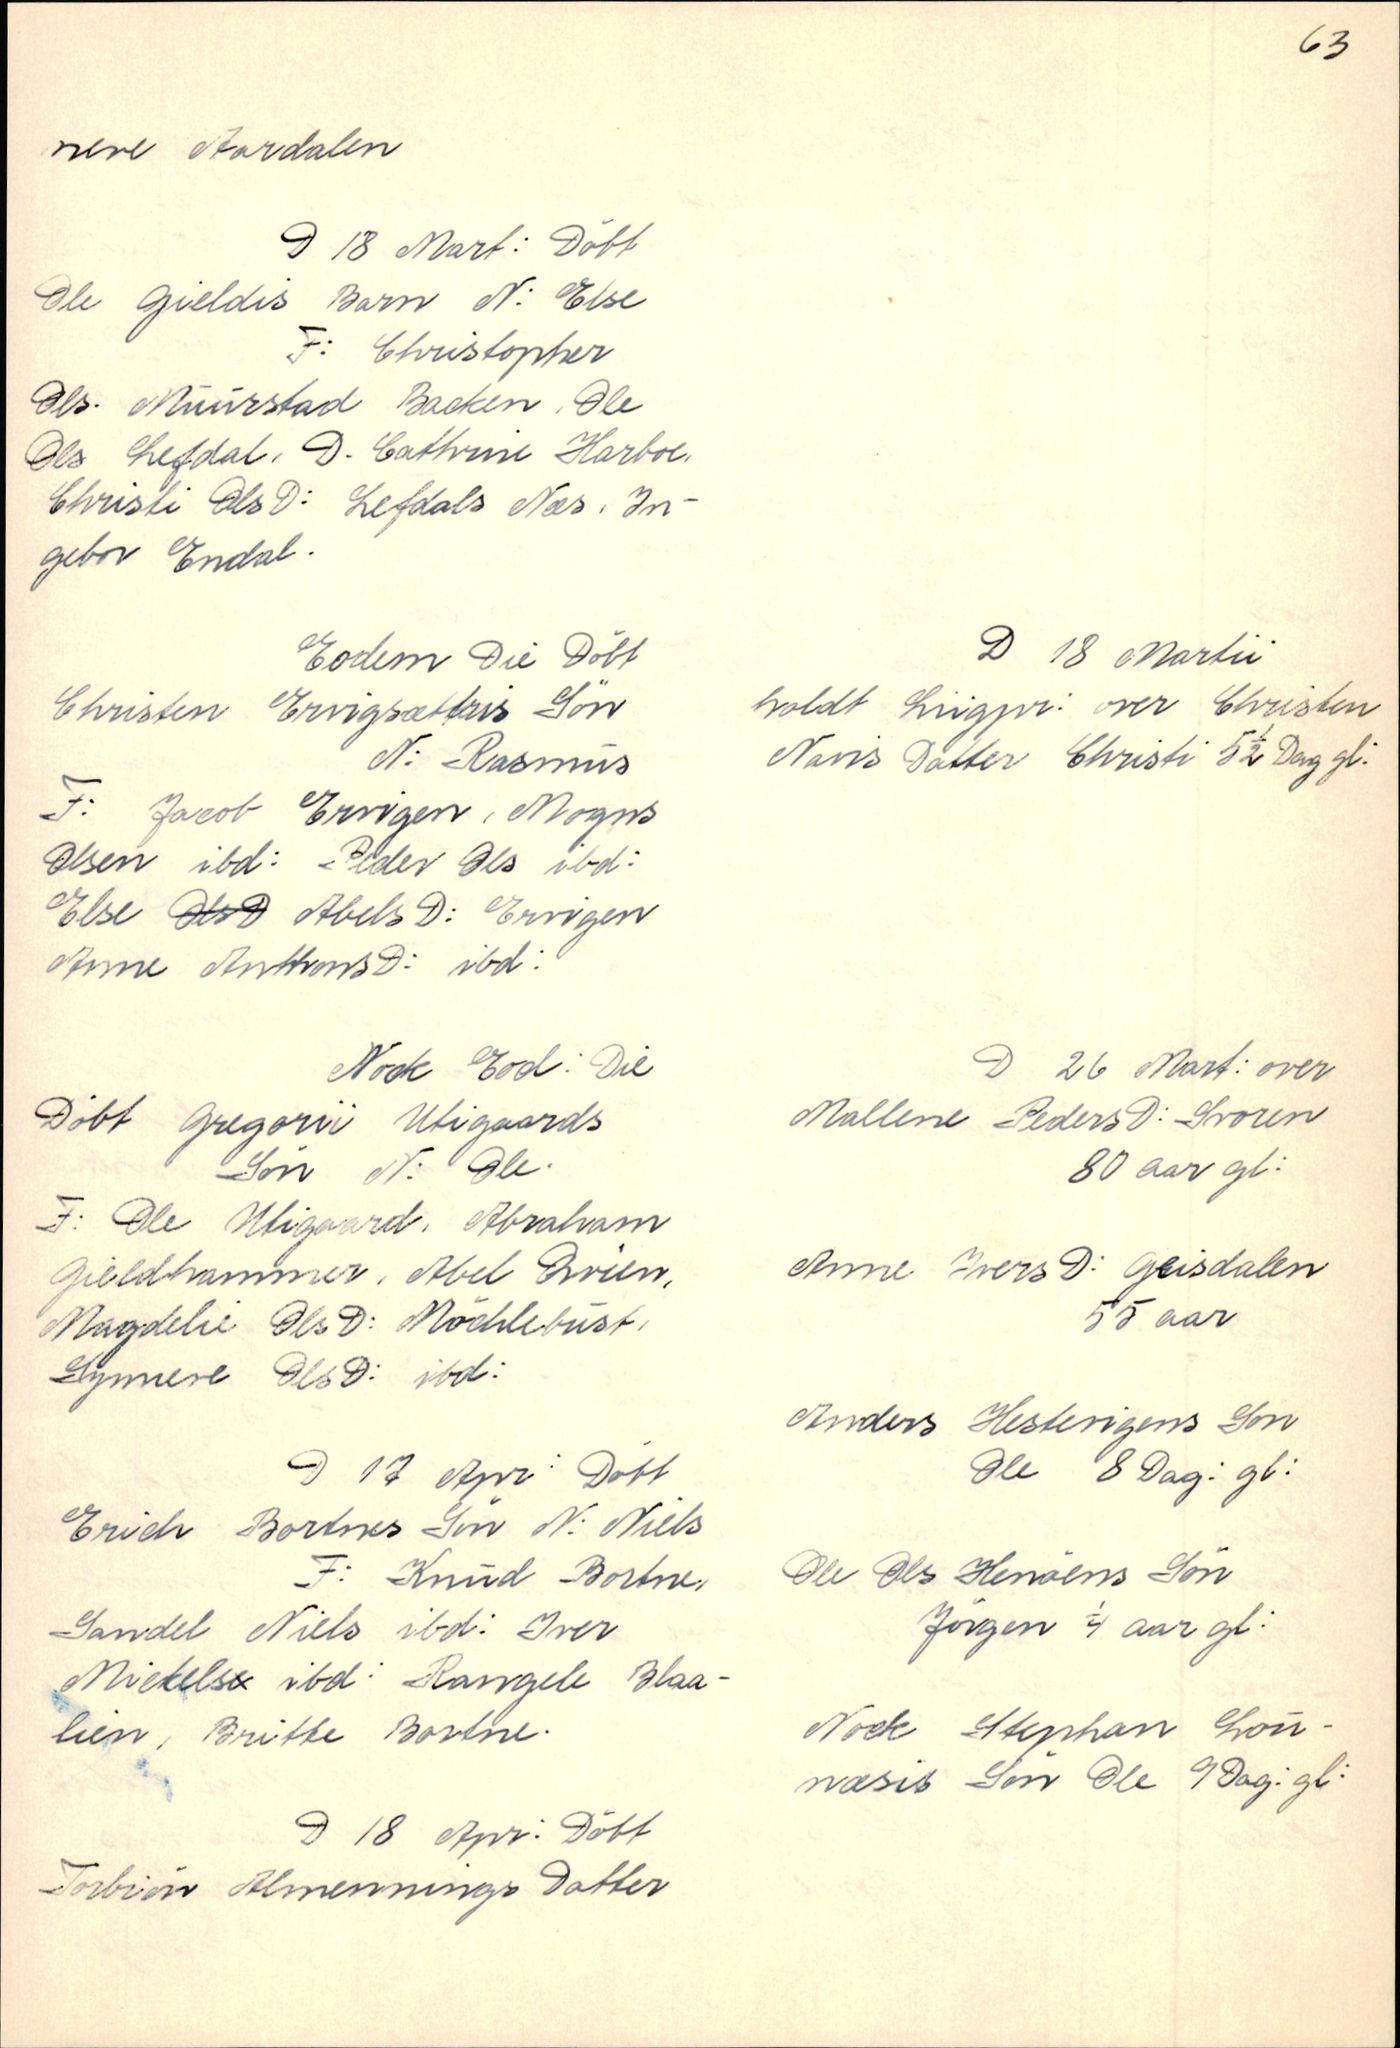 63
nere Aardalen
D 18 Mart: Döbt
Ole Gieldis Barn N: Else
F: Christopher
Ols. Muurstad Backen, Ole
Ols Lefdal, D. Cathrine Harboe,
Christi OlsD: Lefdals Næs, In-
gebor Endal.
Eodem Die Döbt
Christen Ervigsættris Sön
N: Rasmus
F: Jacob Ervigen, Mogns
Olsen ibd: Peder Ols ibd:
Else OlsD AbelsD: Ervigen
Anne AnthonsD: ibd:
Nock Eod: Die
Döbt Gregorii Utigaards
Sön N: Ole.
F: Ole Utigaard, Abraham
Gieldhammer, Abel Qvien,
Magdeli OlsD: Möchlebust,
Synneve OlsD: ibd:
D 17 Apr: Döbt
Erich Bortnes Sön N: Niels
F: Knud Bortne,
Sandel Niels ibd: Iver
Mickels ibd: Rangele Blaa-
lien, Britte Bortne.
D 18 Apr: Döbt
Torbiön Almennings Datter
D 18 Martii
holdt Liigpr: over Christen
Navis Datter Christi 5½ Dag gl:
D 26 Mart: over
Mallene PedersD: Svoren
80 aar gl:
Anne IversD: Geisdalen
55 aar
Anders Hestevigens Son
Ole 8 Dag: gl:
Ole Ols Henöens Sön
Jörgen ¼ aar gl:
Nock Stephan Lou-
næsis Sön Ole 9 Dag: gl: